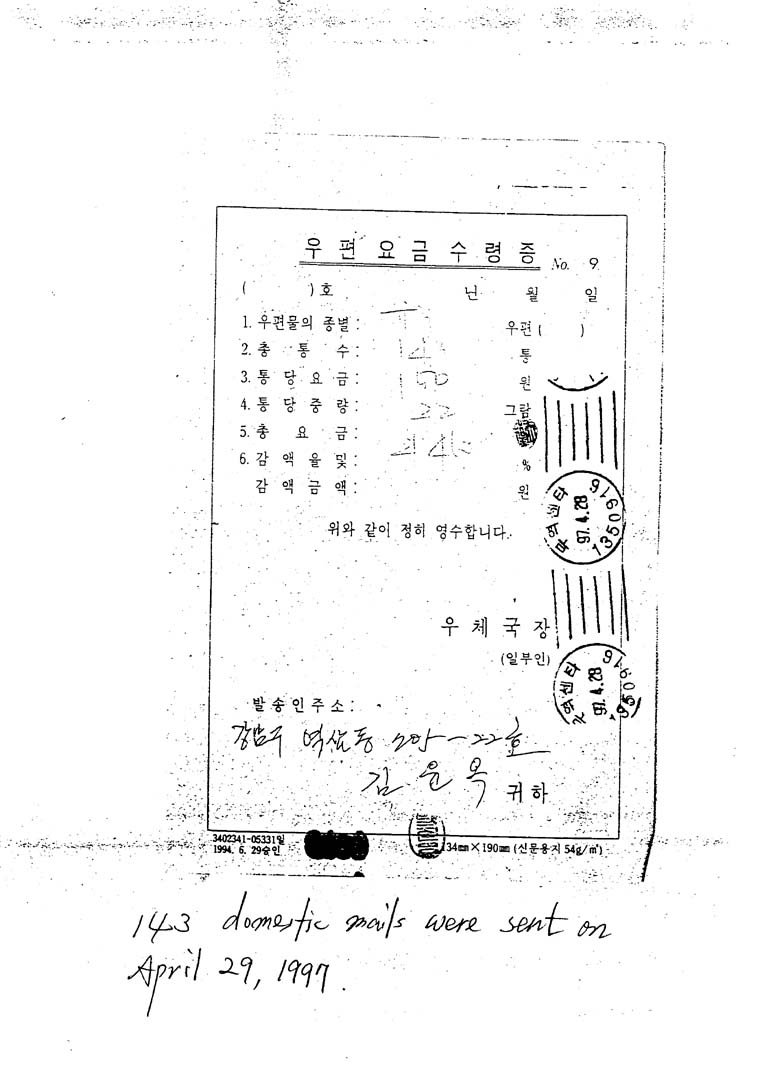 우편요금수령증 No. 9
( )호 년 월 일
1. 우편물의 종별 : 우편 ( )
2. 총 통 수 : 통
3. 통 당 요 금 : 150 원
4. 통 당 중 량 : 22 그람
5. 총 요 금 :
6. 감 액 율 및 : %
감 액 금 액 : 원
위와 같이 정히 영수합니다.
97.4.28
1350916
우 체 국 장
(일부인)
97.4.28
발 송 인 주 소 :
강남구 역삼동 705-22호
김 윤 옥 귀하
3402341-05331일
1994. 6. 29승인
34mm×190mm (신문용지 54g/㎡)
143 domestic mails were sent on
April 29, 1997.